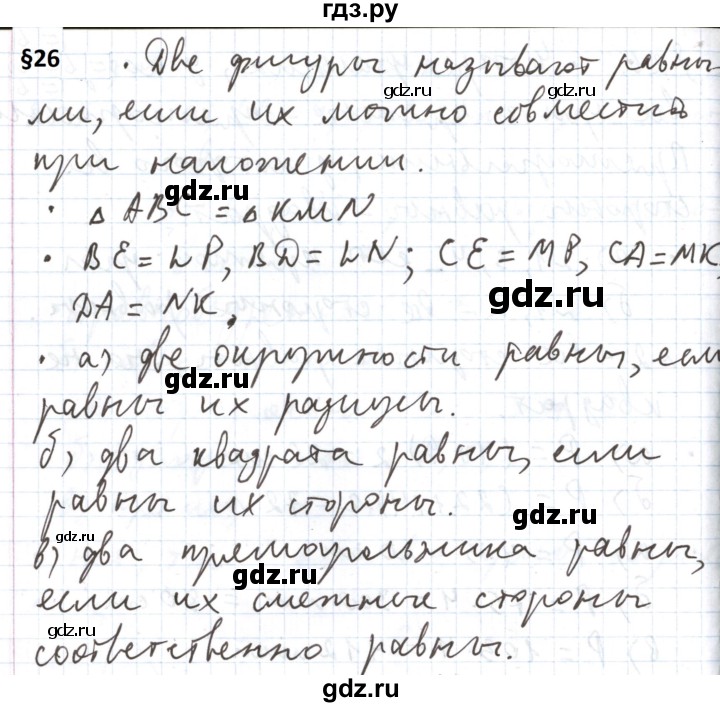 гдз.ру
§26 · Две фигуры называют равны
ми, если их можно совместить
при наложении.
· △ ABC = △ KMN
· BE = LP, BD = LN; CE = MP, CA = MK,
DA = NK,
· а) две окружности равны, если
равны их радиусы.
б) два квадрата равны, если
равны их стороны.
в) два прямоугольника равны,
если их смежные стороны
соответственно равны.
gdz.ru
gdz.ru
gdz.ru
gdz.ru
gdz.ru
gdz.ru
gdz.ru
gdz.ru
gdz.ru
gdz.ru
gdz.ru